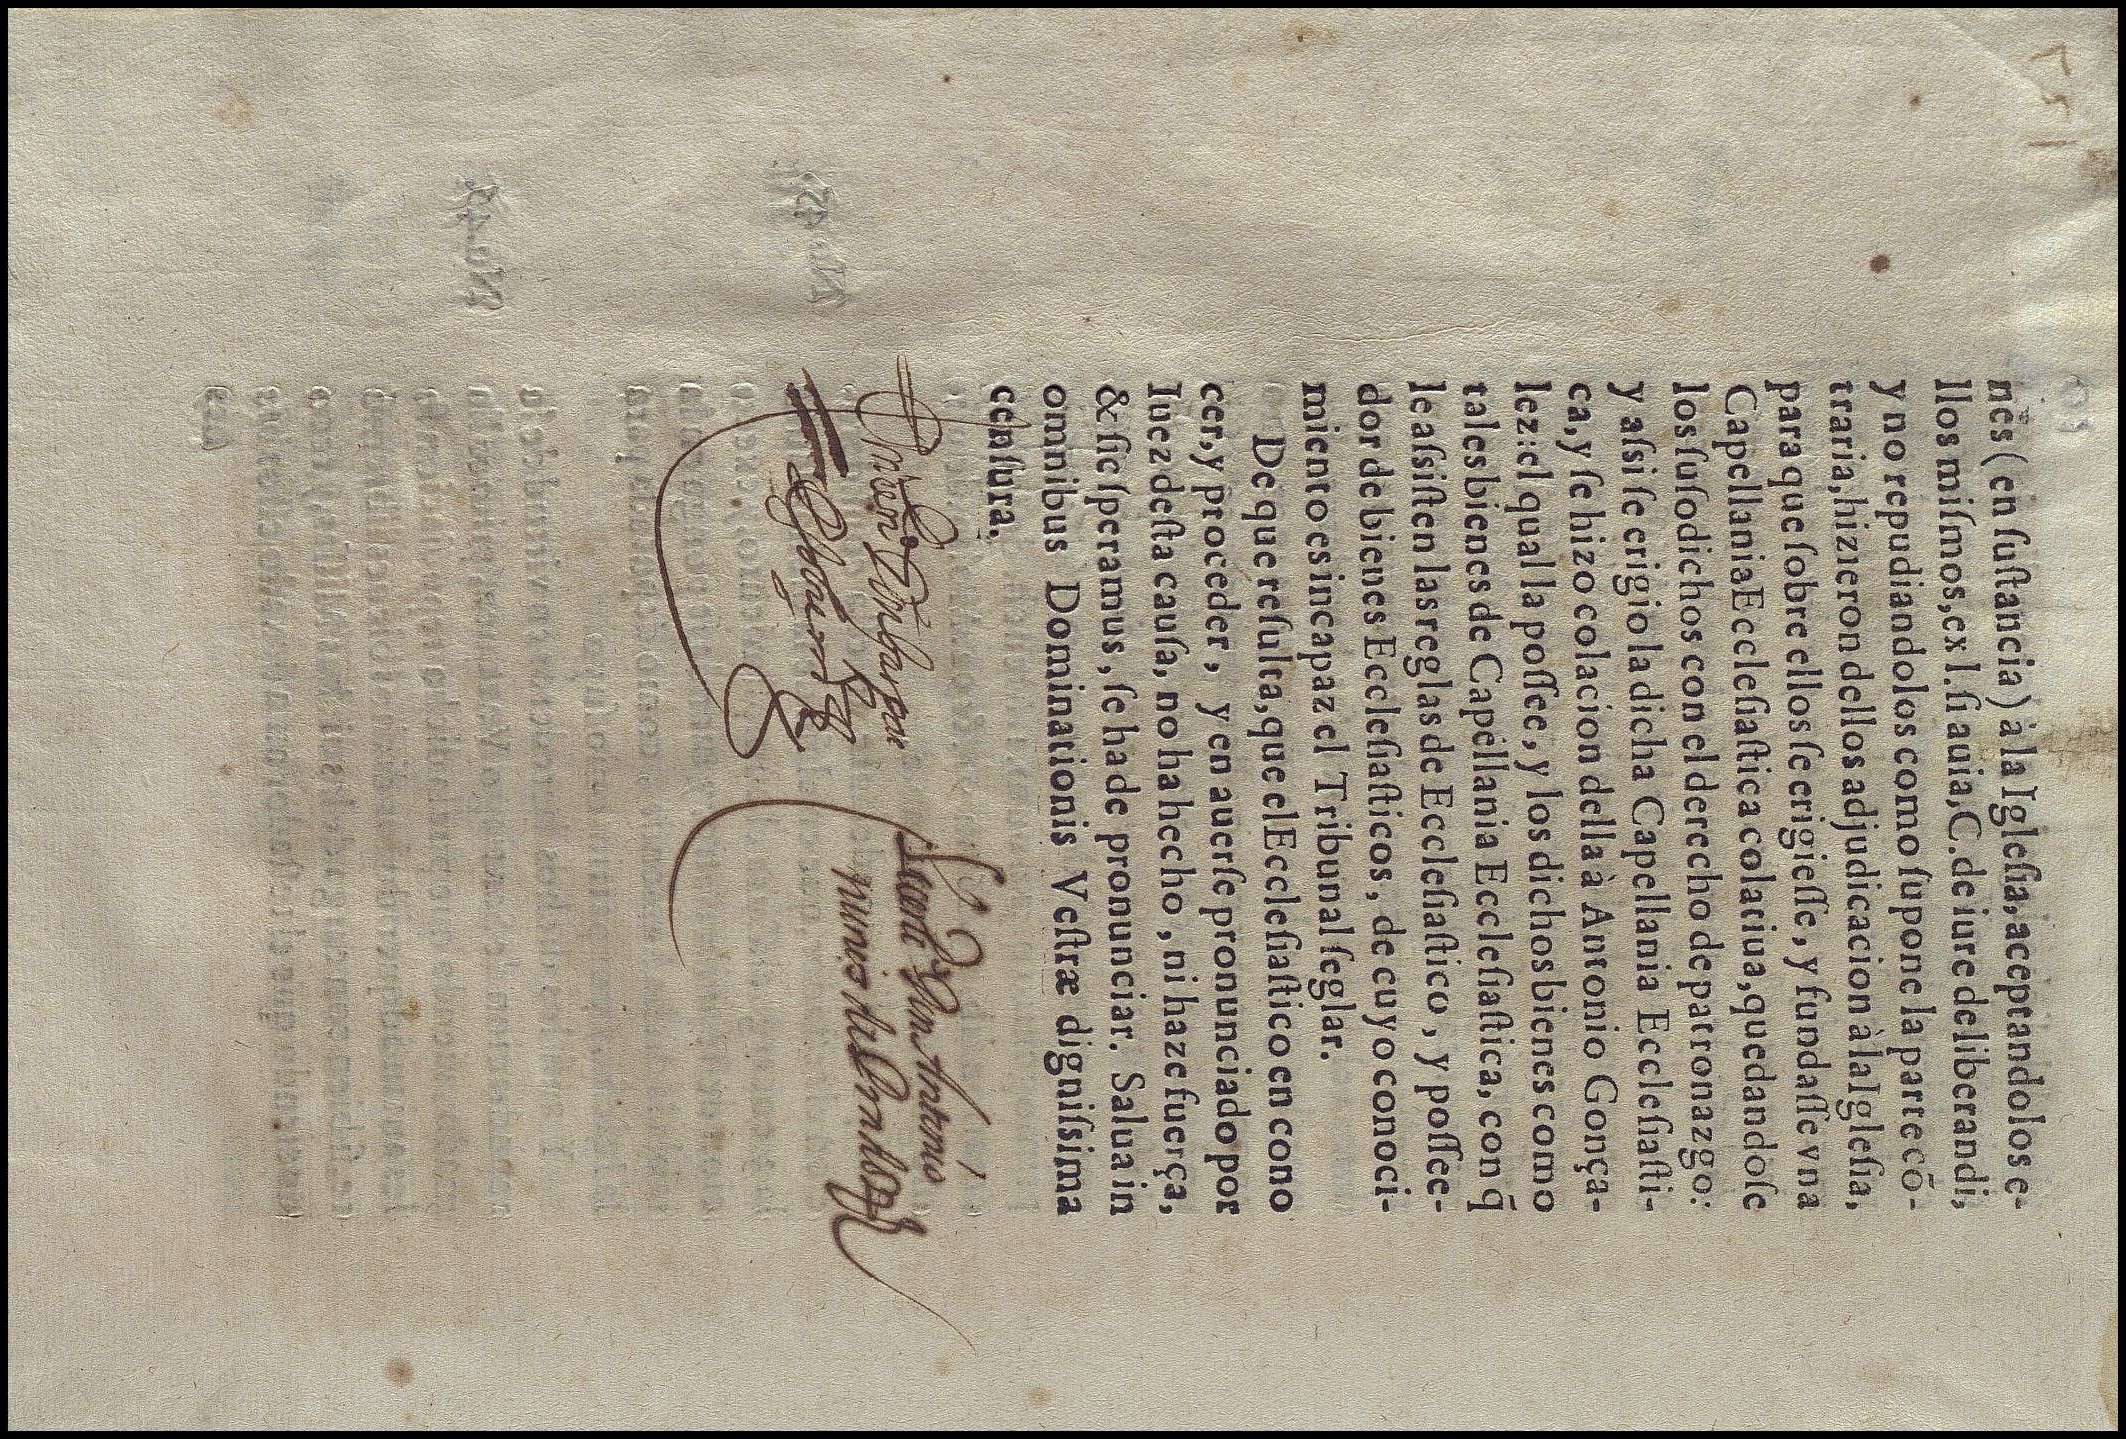 151
nes (en ſuſtancia) à la Igleſia, aceptandolos e-
llos miſmos, ex l. ſi auia, C. de iure deliberandi,
y no repudiandolos como ſupone la parte cō-
traria, hizieron dellos adjudicacion à la Igleſia,
para que ſobre ellos ſe erigieſſe, y fundaſſe vna
Capellania Eccleſiaſtica colatiua, quedandoſe
los ſuſodichos con el derecho de patronazgo:
y aſsi ſe erigio la dicha Capellania Eccleſiaſti-
ca, y ſe hizo colacion della à Antonio Gonça-
lez: el qual la poſſee, y los dichos bienes como
tales bienes de Capellania Eccleſiaſtica, con q̄
le aſsiſten las reglas de Eccleſiaſtico, y poſſee-
dor de bienes Eccleſiaſticos, de cuyo conoci-
miento es incapaz el Tribunal ſeglar.
De que reſulta, que el Eccleſiaſtico en cono
cer, y proceder, y en auerſe pronunciado por
Iuez deſta cauſa, no ha hecho, ni haze fuerça,
& ſic ſperamus, ſe ha de pronunciar. Salua in
omnibus Dominationis Veſtræ digniſsima
cenſura.
Antonio